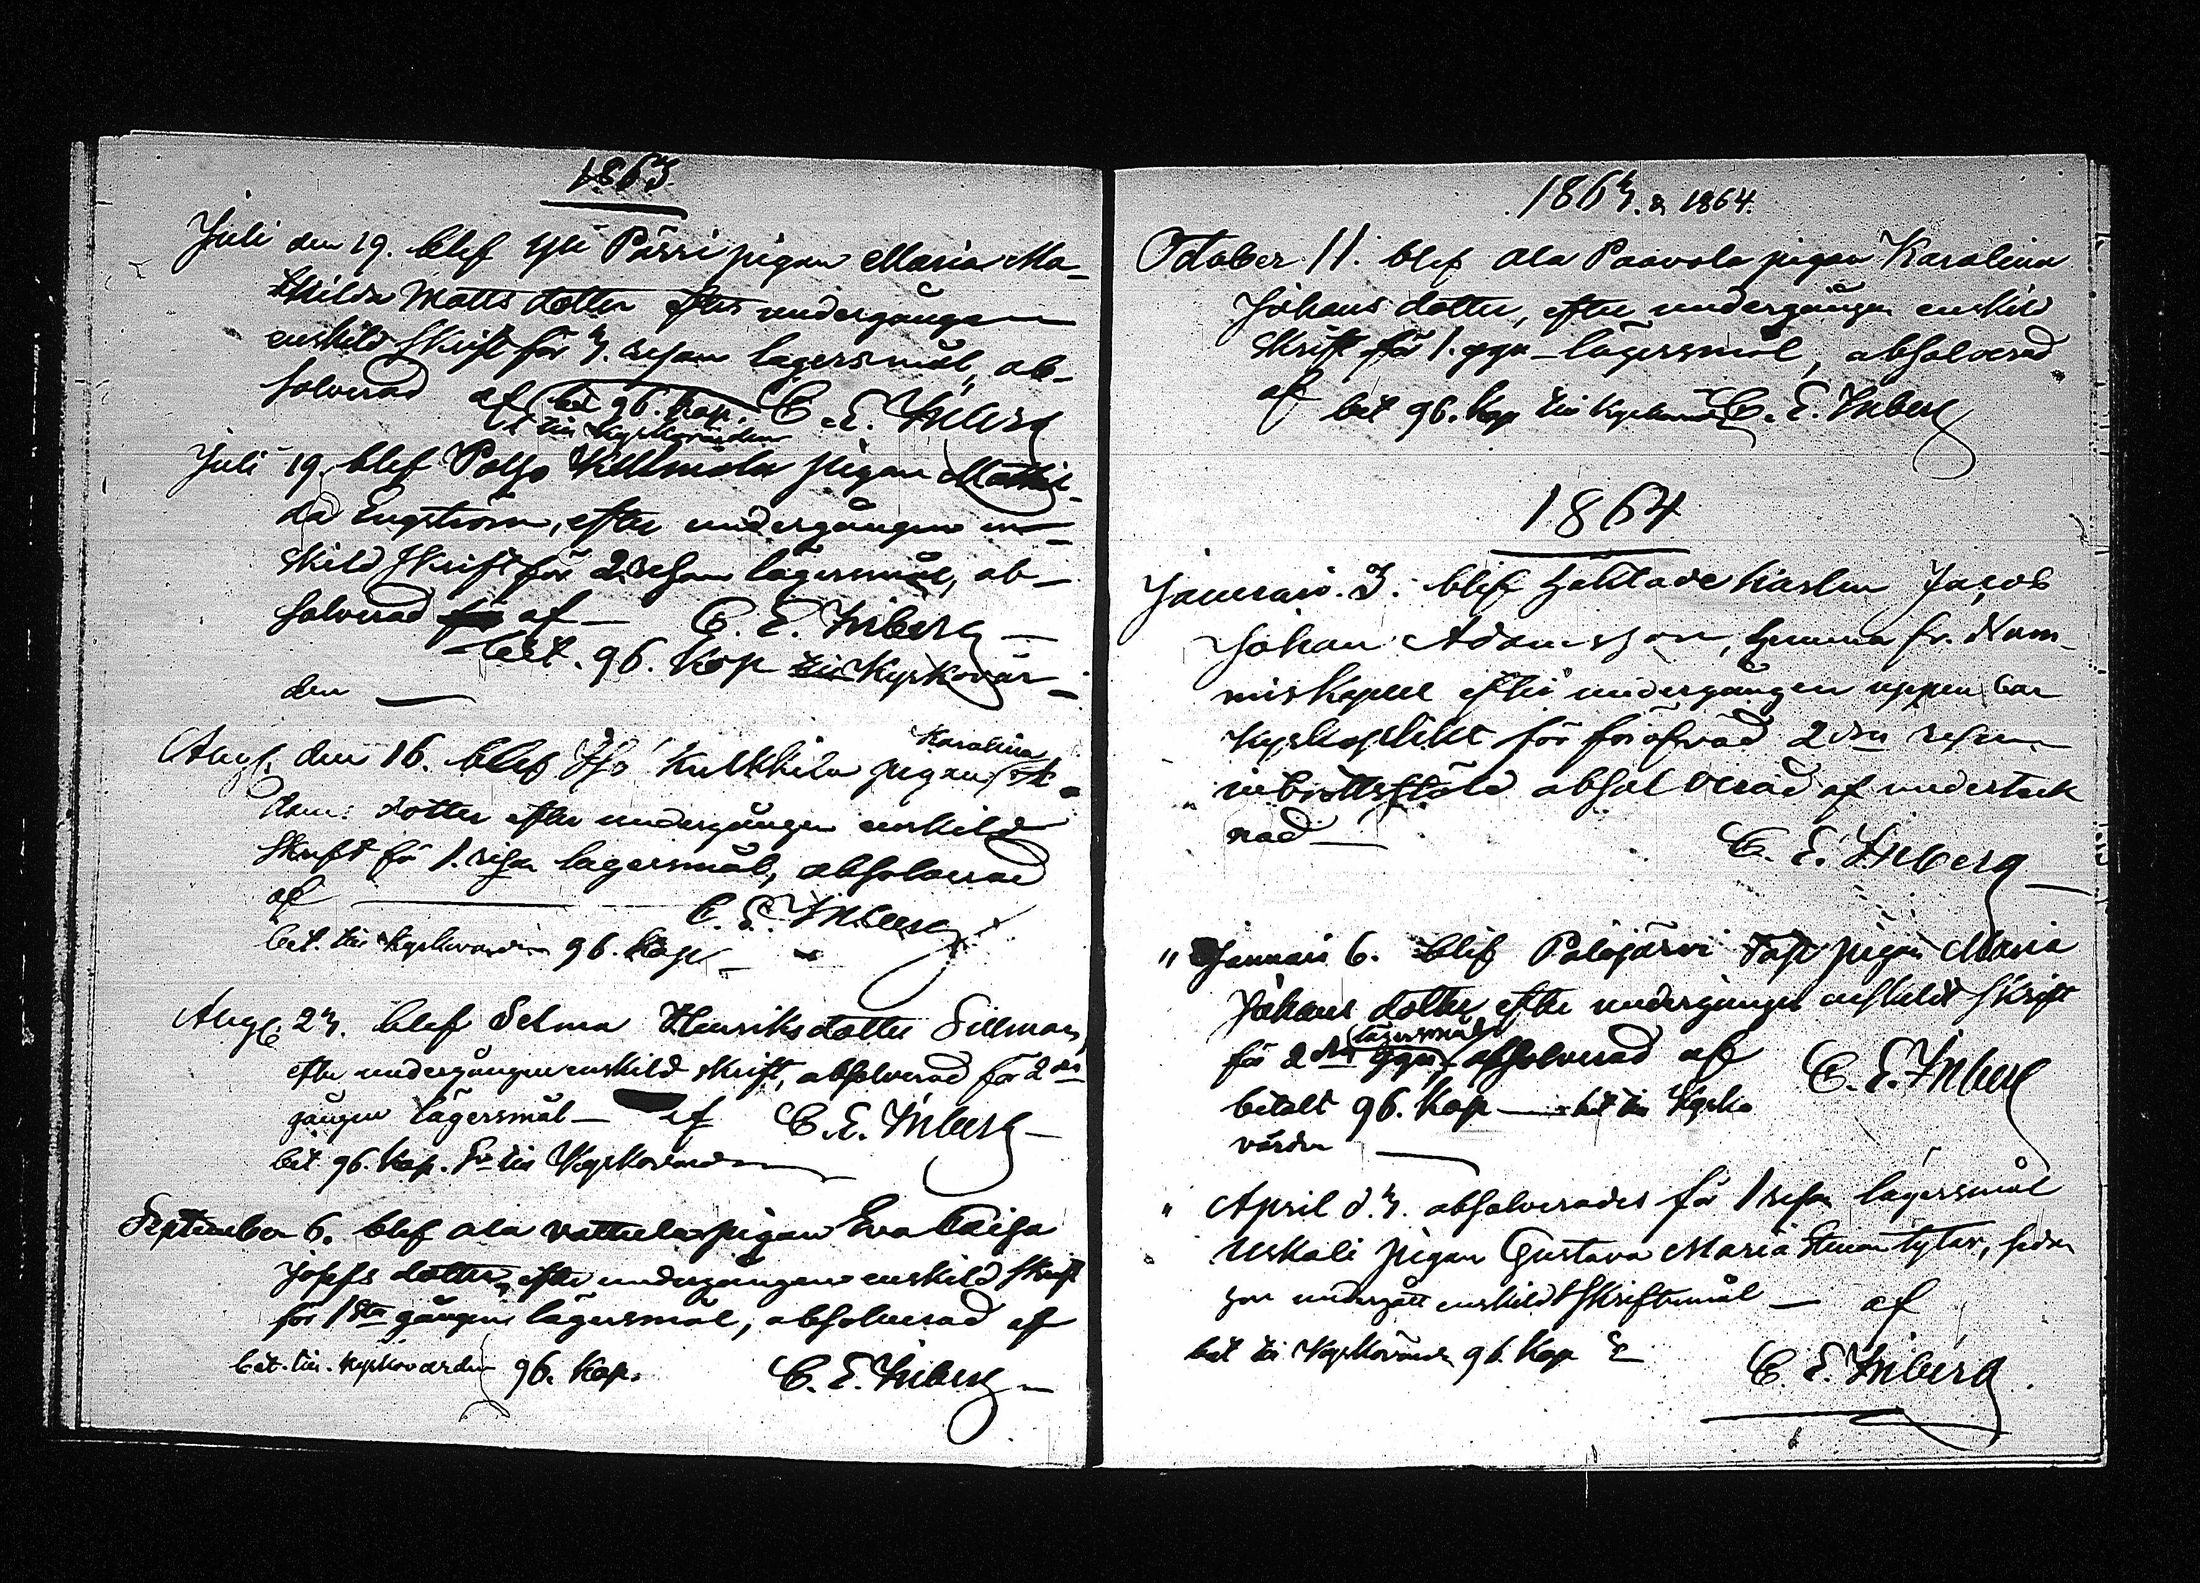 1863
Juli den 19. blef Yli Pässi pigan Maria Ma-
thilda Matts dotter efter undergången
enskild skrift för 3. resan lägersmål, ab-
solverad af C. E. Inberg
bet 96. Kop
till Kyrkovärden
Juli 19. blef Palho pigan Mathil-
da Engström, efter undergången en-
skild skrift för 2. resan lägersmål, ab-
solverad af — C. E. Inberg —
bet. 96. Kop till Kyrkovär-
den —
Aug. den 16. blef Iso Kulkkila pigan Karolina A-
dams dotter efter undergången enskild
skrift för 1. resan lägersmål, absolverad
af — C. E. Inberg
bet. till Kyrkovärden 96. Kop —
Aug. 23. blef Selma Henriksdotter Sillman,
efter undergången enskild skrift, absolverad för 2dra
gången lägersmål — af C. E. Inberg —
bet 96. Kop. Sr till Kyrkovärden
September 6. blef Ala Vattula pigan Eva Caisa
Josefs dotter, efter undergången enskild skrift
för 1sta gången lägersmål, absolverad af
bet. till. Kyrkovärden 96. Kop. C. E. Inberg —
1863. & 1864.
October 11. blef Ala Paavola pigan Karolina
Johans dotter, efter undergången enskild
skrift för 1. ggn lägersmål, absolverad
af bet 96. Kop till Kyrkovärd C. E. Inberg
1864
Januari. 3. blef häktade karlen Jacob
Johan Adamsson, hemma fr. Num-
mis kapell efter undergången uppenbar
Kyrkoplikt för föröfvad 2dra resan
inbrottsstöld absolverad af underteck
nad — C. E. Inberg —
" Januari 6. blef Palojärvi Torp pigan Maria
Johans dotter efter undergånget enskildt skrift
för 2dra ggn lägersmål absolverad af C. E. Inberg
betalt 96. Kop — bet till Kyrko
värden —
" April d. 3. absolverades för 1 resan lägersmål
Uskali pigan Gustava Maria Simontytär, sedan
hon undergått enskildt skriftemål — af
bet till Kyrkovärden 96. Kop Sr
C. E. Inberg.